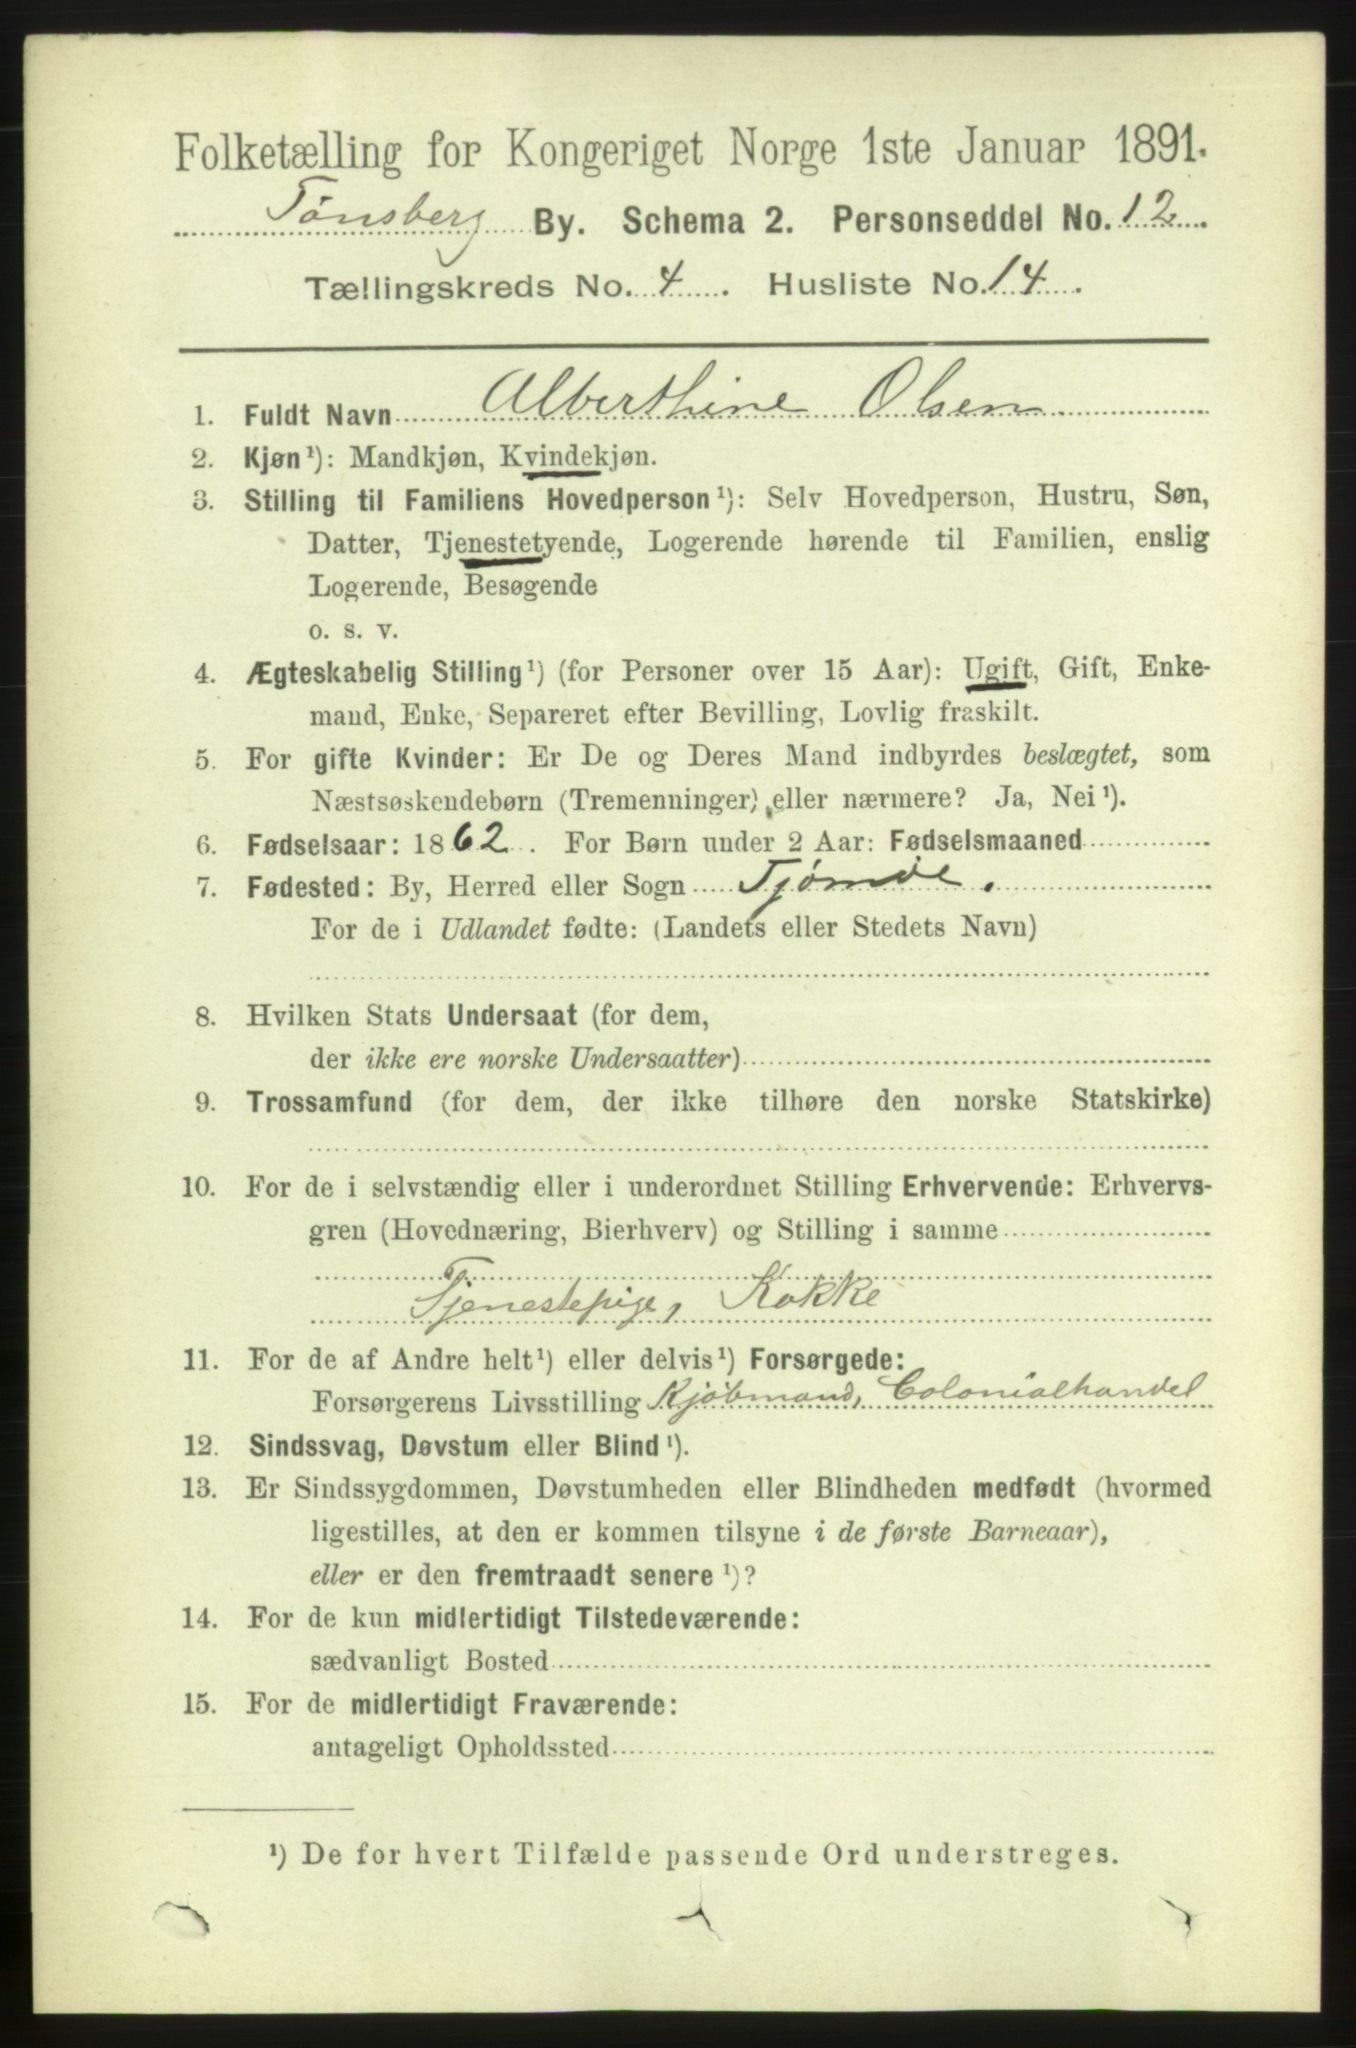 Folketælling for Kongeriget Norge 1ste Januar 1891.
Tønsberg By. Schema 2. Personseddel No. 12
Tællingskreds No. 4. Husliste No. 14.
1. Fuldt Navn Alberthine Olsen
2. Kjøn¹): Mandkjøn, Kvindekjøn.
3. Stilling til Familiens Hovedperson¹): Selv Hovedperson, Hustru, Søn,
Datter, Tjenestetyende, Logerende hørende til Familien, enslig
Logerende, Besøgende
o. s. v.
4. Ægteskabelig Stilling¹) (for Personer over 15 Aar): Ugift, Gift, Enke-
mand, Enke, Separeret efter Bevilling, Lovlig fraskilt.
5. For gifte Kvinder: Er De og Deres Mand indbyrdes beslægtet, som
Næstsøskendebørn (Tremenninger) eller nærmere? Ja, Nei¹).
6. Fødselsaar: 1862. For Børn under 2 Aar: Fødselsmaaned
7. Fødested: By, Herred eller Sogn Tjømde.
For de i Udlandet fødte: (Landets eller Stedets Navn)
8. Hvilken Stats Undersaat (for dem,
der ikke ere norske Undersaatter)
9. Trossamfund (for dem, der ikke tilhøre den norske Statskirke)
10. For de i selvstændig eller i underordnet Stilling Erhvervende: Erhvervs-
gren (Hovednæring, Bierhverv) og Stilling i samme
Tjenestepige, Kokke
11. For de af Andre helt¹) eller delvis¹) Forsørgede:
Forsørgerens Livsstilling Kjøbmand, Colonialhandel
12. Sindssvag, Døvstum eller Blind¹).
13. Er Sindssygdommen, Døvstumheden eller Blindheden medfødt (hvormed
ligestilles, at den er kommen tilsyne i de første Barneaar),
eller er den fremtraadt senere¹)?
14. For de kun midlertidigt Tilstedeværende:
sædvanligt Bosted
15. For de midlertidigt Fraværende:
antageligt Opholdssted
¹) De for hvert Tilfælde passende Ord understreges.